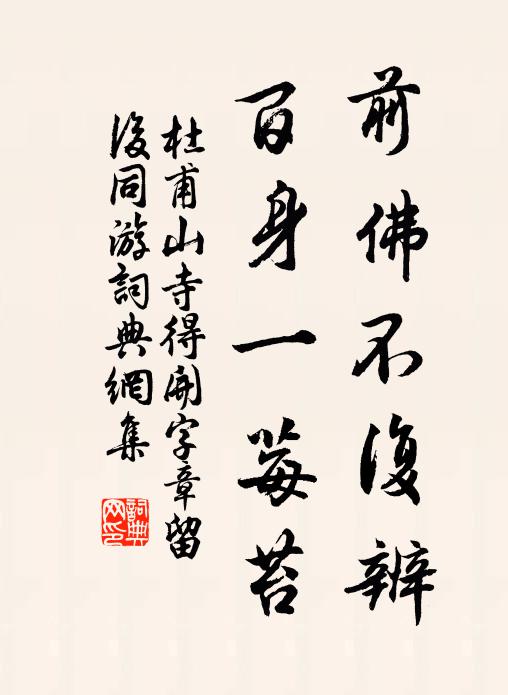 前佛不復辨
百身一莓苔
杜甫山寺得開字章留
後同游詞典網集
詞典
网印